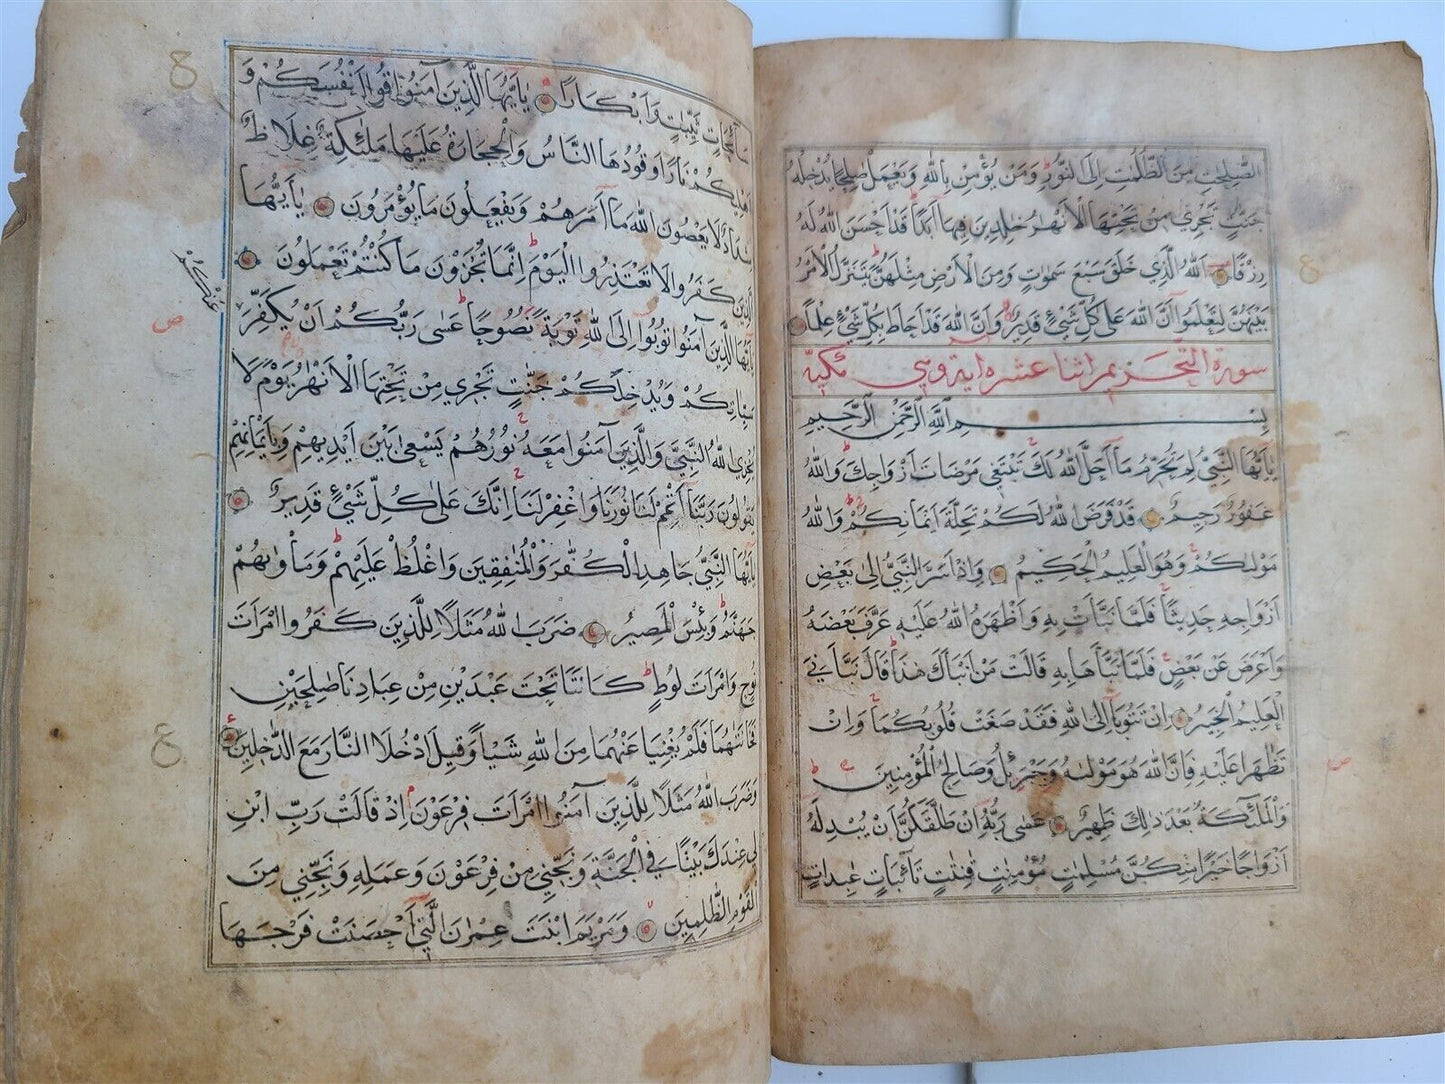 الصّٰلِحٰتِ مِنَ الظُّلُمٰتِ اِلَى النُّورِ وَمَنْ يُؤْمِنْ بِاللّٰهِ وَيَعْمَلْ صَالِحًا يُدْخِلْهُ
جَنّٰتٍ تَجْرِي مِنْ تَحْتِهَا الْاَنْهٰرُ خٰلِدِينَ فِيهَا اَبَدًا قَدْ اَحْسَنَ اللّٰهُ لَهُ
رِزْقًا اَللّٰهُ الَّذِي خَلَقَ سَبْعَ سَمٰوَاتٍ وَمِنَ الْاَرْضِ مِثْلَهُنَّ يَتَنَزَّلُ الْاَمْرُ
بَيْنَهُنَّ لِتَعْلَمُوا اَنَّ اللّٰهَ عَلٰى كُلِّ شَيْئٍ قَدِيرٌ وَاَنَّ اللّٰهَ قَدْ اَحَاطَ بِكُلِّ شَيْئٍ عِلْمًا
سورة التحريم اثنا عشره اية وهي مكية
بِسْمِ اللّٰهِ الرَّحْمٰنِ الرَّحِيمِ
يٰاَيُّهَا النَّبِيُّ لِمَ تُحَرِّمُ مَا اَحَلَّ اللّٰهُ لَكَ تَبْتَغِي مَرْضَاتَ اَزْوَاجِكَ وَاللّٰهُ
غَفُورٌ رَحِيمٌ قَدْ فَرَضَ اللّٰهُ لَكُمْ تَحِلَّةَ اَيْمَانِكُمْ وَاللّٰهُ
مَوْلٰىكُمْ وَهُوَ الْعَلِيمُ الْحَكِيمُ وَاِذْ اَسَرَّ النَّبِيُّ اِلٰى بَعْضِ
اَزْوَاجِهِ حَدِيثًا فَلَمَّا نَبَّاَتْ بِهِ وَاَظْهَرَهُ اللّٰهُ عَلَيْهِ عَرَّفَ بَعْضَهُ
وَاَعْرَضَ عَنْ بَعْضٍ فَلَمَّا نَبَّاَهَا بِهِ قَالَتْ مَنْ اَنْبَاَكَ هٰذَا قَالَ نَبَّاَنِيَ
الْعَلِيمُ الْخَبِيرُ اِنْ تَتُوبَا اِلَى اللّٰهِ فَقَدْ صَغَتْ قُلُوبُكُمَا وَاِنْ
تَظٰهَرَا عَلَيْهِ فَاِنَّ اللّٰهَ هُوَ مَوْلٰيهُ وَجِبْرِيلُ وَصَالِحُ الْمُؤْمِنِينَ
وَالْمَلٰئِكَةُ بَعْدَ ذٰلِكَ ظَهِيرٌ عَسٰى رَبُّهُ اِنْ طَلَّقَكُنَّ اَنْ يُبْدِلَهُ
اَزْوَاجًا خَيْرًا مِنْكُنَّ مُسْلِمٰتٍ مُؤْمِنٰتٍ قٰنِتٰتٍ تٰٓائِبَاتٍ عٰبِدَاتٍ
سَآئِحَاتٍ ثَيِّبٰتٍ وَاَبْكَارًا يٰاَيُّهَا الَّذِينَ اٰمَنُوا قُوا اَنْفُسَكُمْ وَ
اَهْلِيكُمْ نَارًا وَقُودُهَا النَّاسُ وَالْحِجَارَةُ عَلَيْهَا مَلٰئِكَةٌ غِلَاظٌ
شِدَادٌ لَا يَعْصُونَ اللّٰهَ مَا اَمَرَهُمْ وَيَفْعَلُونَ مَا يُؤْمَرُونَ يٰاَيُّهَا
الَّذِينَ كَفَرُوا لَا تَعْتَذِرُوا الْيَوْمَ اِنَّمَا تُجْزَوْنَ مَا كُنْتُمْ تَعْمَلُونَ
يٰاَيُّهَا الَّذِينَ اٰمَنُوا تُوبُوا اِلَى اللّٰهِ تَوْبَةً نَصُوحًا عَسٰى رَبُّكُمْ اَنْ يُكَفِّرَ
عَنْكُمْ
سَيِّاٰتِكُمْ وَيُدْخِلَكُمْ جَنّٰتٍ تَجْرِي مِنْ تَحْتِهَا الْاَنْهٰرُ يَوْمَ لَا
يُخْزِي اللّٰهُ النَّبِيَّ وَالَّذِينَ اٰمَنُوا مَعَهُ نُورُهُمْ يَسْعٰى بَيْنَ اَيْدِيهِمْ وَبِاَيْمَانِهِمْ
يَقُولُونَ رَبَّنَا اَتْمِمْ لَنَا نُورَنَا وَاغْفِرْ لَنَا اِنَّكَ عَلٰى كُلِّ شَيْئٍ قَدِيرٌ
يٰاَيُّهَا النَّبِيُّ جَاهِدِ الْكُفَّارَ وَالْمُنٰفِقِينَ وَاغْلُظْ عَلَيْهِمْ وَمَاْوٰيهُمْ
جَهَنَّمُ وَبِئْسَ الْمَصِيرُ ضَرَبَ اللّٰهُ مَثَلًا لِلَّذِينَ كَفَرُوا امْرَاَتَ
نُوحٍ وَامْرَاَتَ لُوطٍ كَانَتَا تَحْتَ عَبْدَيْنِ مِنْ عِبَادِنَا صٰلِحَيْنِ
فَخَانَتٰهُمَا فَلَمْ يُغْنِيَا عَنْهُمَا مِنَ اللّٰهِ شَيْاً وَقِيلَ ادْخُلَا النَّارَ مَعَ الدّٰخِلِينَ
وَضَرَبَ اللّٰهُ مَثَلًا لِلَّذِينَ اٰمَنُوا امْرَاَتَ فِرْعَوْنَ اِذْ قَالَتْ رَبِّ ابْنِ
لِي عِنْدَكَ بَيْتًا فِي الْجَنَّةِ وَنَجِّنِي مِنْ فِرْعَوْنَ وَعَمَلِهِ وَنَجِّنِي مِنَ
الْقَوْمِ الظّٰلِمِينَ وَمَرْيَمَ ابْنَتَ عِمْرٰنَ الَّتِي اَحْصَنَتْ فَرْجَهَا